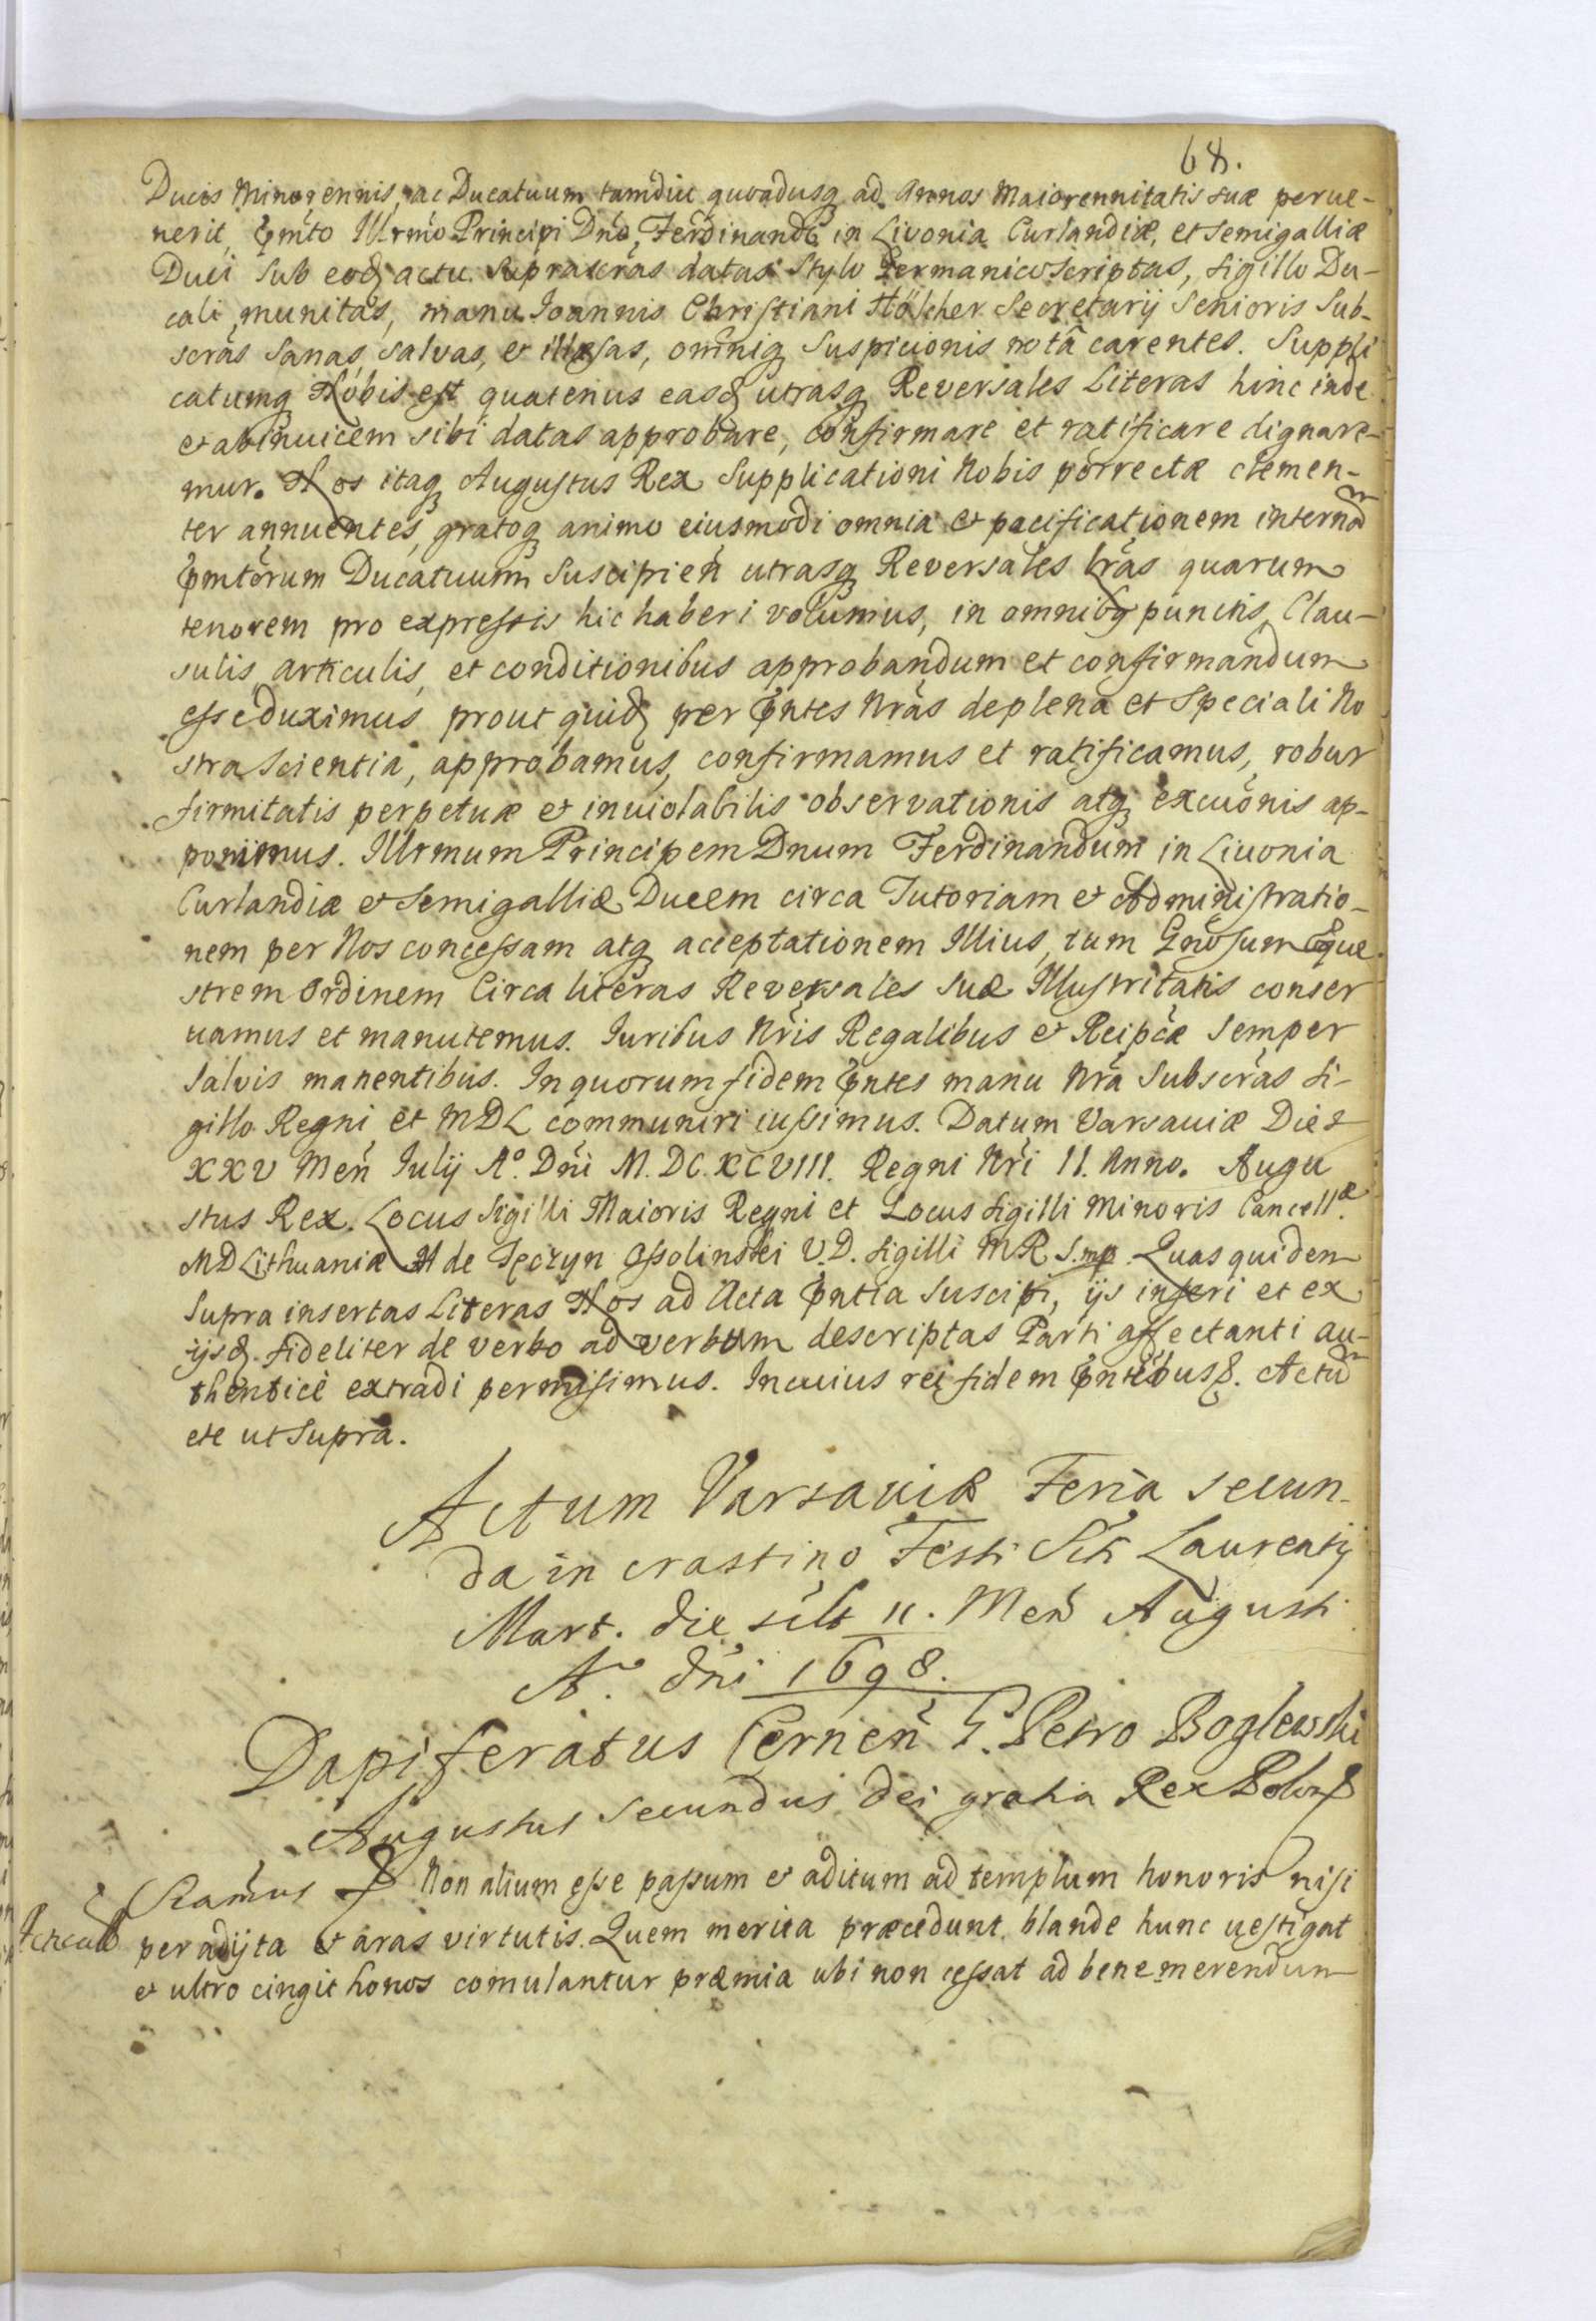 68.
Ducis Minorennis, ac Ducatuum tamdiu quoadusq ad Annos Maiorennitatis suæ perue-
nerit, Pmto Illrmo Principi Dno, Ferdinando in Livonia Curlandiæ, et Semigalliæ
Duci sub eod actu suprascras datas Stylo Germanico scriptas, sigillo Du-
cali munitas, manu Joannis Christiani Hölcher Secretarij Senioris Sub-
scras sanas, salvas, et illæsas, omniq Suspicionis nota carentes. Suppli
catumq Nobis est quatenus easd utrasq Reversales Literas hinc inde
et abinuicem sibi datas approbare, confirmare et ratificare dignare-
mur. Nos itaq Augustus Rex Supplicationi Nobis porrectæ clemen-
ter annuentes, gratoq animo eiusmodi omnia et pacificationem internā
Pmtorum Ducatuum Suscipien utrasq Reversales lras quarum
tenorem pro expressis hic haberi volumus, in omnibq punctis, Clau-
sulis, articulis, et conditionibus approbandum et confirmandum
esse duximus prout quid per Pntes Nras de plena et Speciali No
stra Scientia, approbamus, confirmamus et ratificamus, robur
firmitatis perpetuæ et inuiolabilis observationis atq excuonis ap-
ponimus. Illrmum Principem Dnum Ferdinandum in Livonia
Curlandiæ et Semigalliæ Ducem circa Tutoriam et Administratio-
nem per Nos concessam atq acceptationem Illius, tum Gnosum Eque
strem Ordinem Circa literas Reversales Suæ Illustritatis conser
uamus et manutemus. Iuribus Nris Regalibus et Reipcæ semper
salvis manentibus. In quorum fidem Pntes manu Nra Subscras Si-
gillo Regni et MDL communiri iussimus. Datum Varsauiæ Die
XXV Men Iulij Aº. Dni M.DC.XCVIII. Regni Nri II. Anno. Augu
stus Rex. Locus Sigilli Maioris Regni et Locus sigilli Minoris Cancellæ
MD Lithuaniæ H de Tęczyn Ossolinski V.D. sigilli MR S.mp. Quas quidem
Supra insertas Literas Nos ad Acta Pntia Suscipi, ijs inseri et ex
ijsd. fideliter de verbo ad verbum descriptas Parti affectanti au-
thentice extradi permisimus. In cuius rei fidem Pntibus &. Actū
etc ut Supra.
Actum Varsauiæ Feria secun-
da in crastino Festi Sti Laurentij
Mart. die silt 11. Men Augusti
Aº. dni 1698.
Dapiferatus Cernen G. Petro Boglewski
Augustus secundus Dei gratia Rex Polon &
Scamus & Non alium esse passum et aditum ad templum honoris nisi
per adijta et aras virtutis. Quem merita præcedunt, blande hunc uestigat
et ultro cingit honos comulantur præmia ubi non cessat ad bene merendum